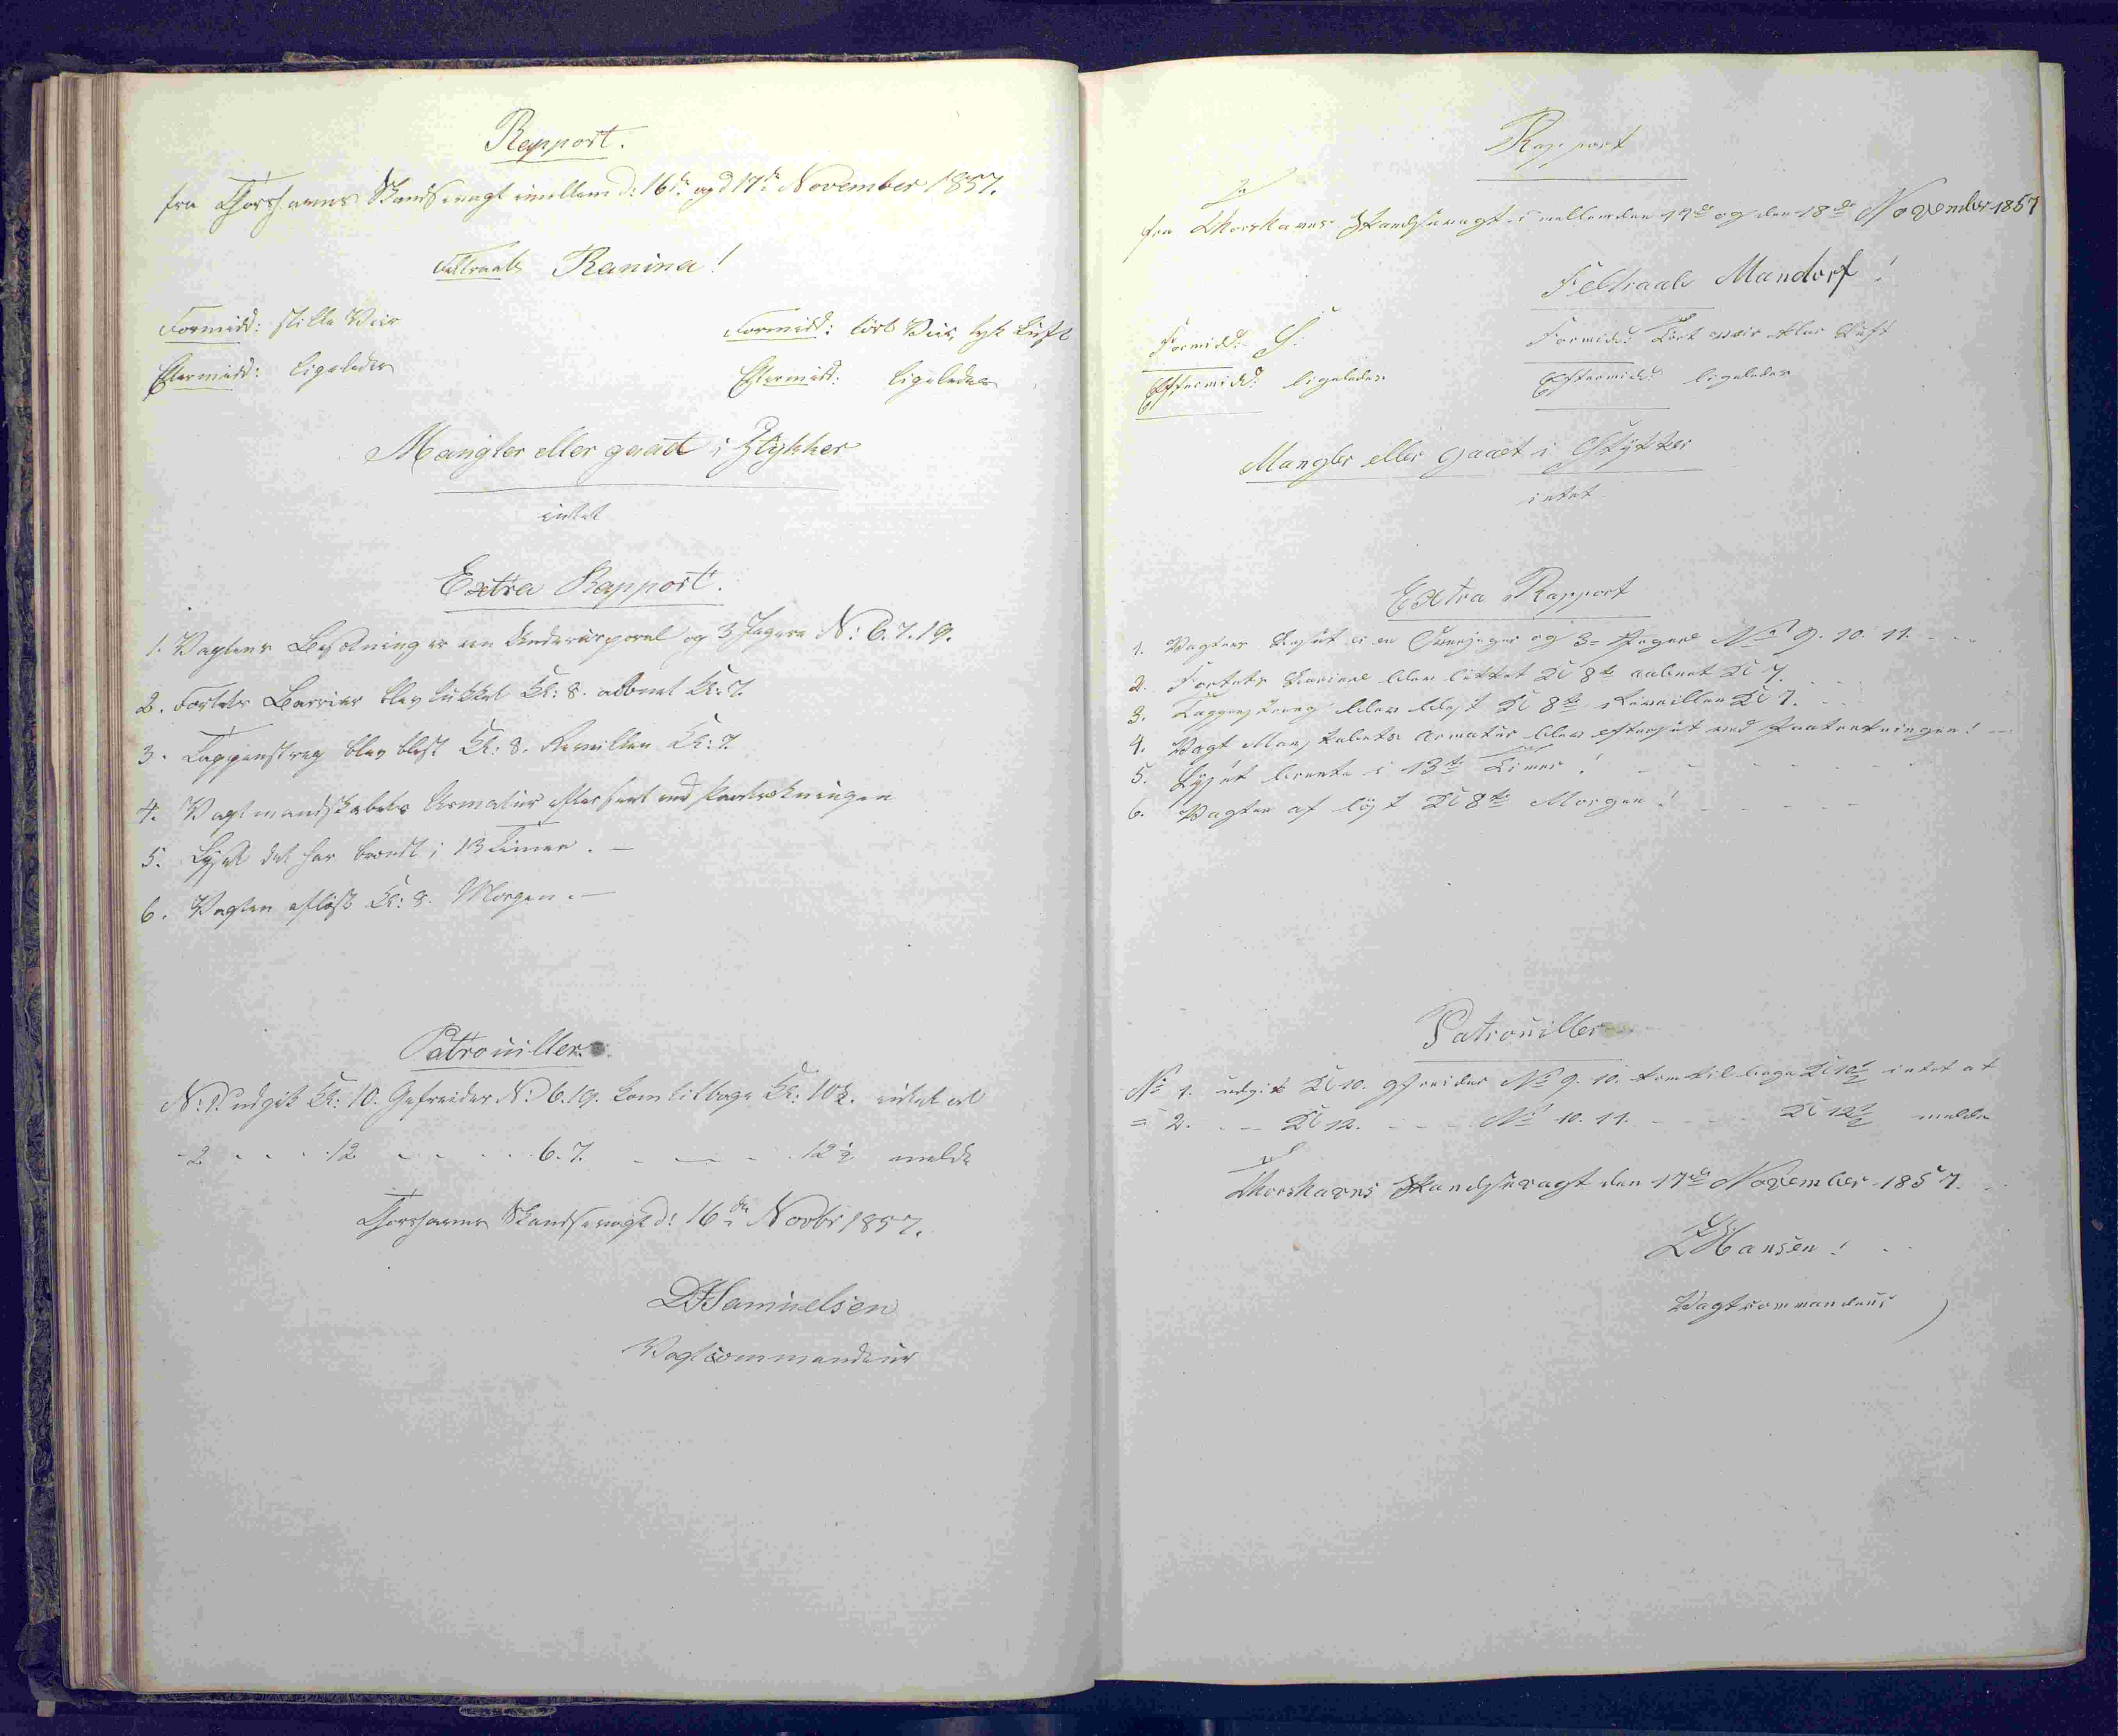 Rapport.
fra Thorshavns Skandsevagt imellem d: 16de og d 17de November 1857.
Feltraab Ranina!
Formidd: stille Veir
Formidd: tørt Veir, tyk Luft
Eftermidd: ligeledes
Eftermidd: ligeledes
Mangler eller gaaet i Stykker
intet
Extra Rapport.
1. Vagtens Besætning er en Undercorporal og 3 Jægere N: 6. 7. 19.
2. Fortets Barrier blev lukket Kl: 8. aabnet Kl: 7.
3. Tappenstreg blev blæst Kl: 8. Reveillen Kl: 7.
4. Vagtmandskabets Armatur efterseet ved Paatrækningen
5. Lyset det har brændt i 13 Timer. —
6. Vagten afløst Kl: 8. Morgen. —
Patrouiller.
N: 1. udgik Kl: 10. Gefreider N: 6. 19. kom tilbage Kl: 10½. intet at
- 2 - - - 12 - - - - 6. 7. - — - . 12½ melde
Thorshavns Skandsevagt d: 16de Novbr 1857.
DJSamuelsen
Vagtcommandeur
Rapport
fra Thorshavns Skandsevagt i mellem den 17de og den 18de November 1857
Feltraab Mandorf!
Formidd: S:
Formidd: Tørt veir klar Luft
Eftermidd: ligeledes
Eftermidd: ligeledes
Mangler eller gaaet i Stykker
intet
Extra Rapport
1. Vagtens Besæt er en Overjæger og 3 Jægere No 9. 10. 11. - - -
2. Fortets Bariere blev lukket Kl 8te aabnet Kl 7. - -
3. Tappenstreeg blev blæst Kl 8te Reveillen Kl 7. - -
4. Vagt Manskabets Armatur blev efterset ved Paatrækningen! —
5. Lyset brente i 13te Timer! - - - - -
6. Vagten af løst Kl 8te Morgen! - - - - -
Patrouiller
No 1. udgik Kl 10. gefreider No 9. 10. kom tilbage Kl 10½ intet at
= 2. - — Kl 12. - - - . No 10. 11. - - - Kl 12½ melde
Thorshavns Skandsevagt den 17de November 1857.
Hansen!
Vagtcommandeur